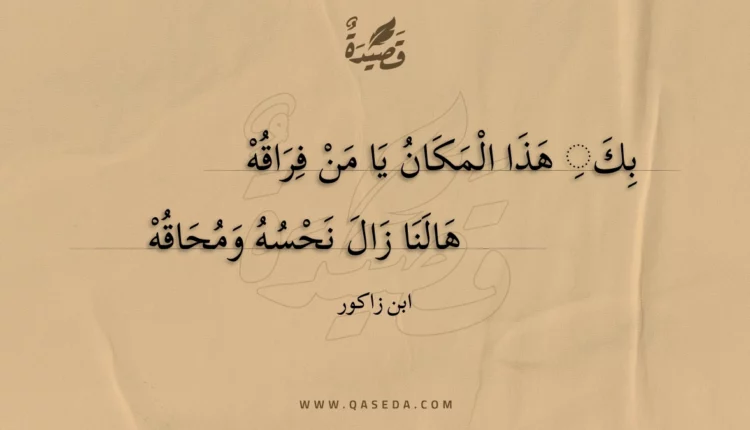 قَصِيدَةٌ
بِكَ ◌ِ هَذَا الْمَكَانُ يَا مَنْ فِرَاقُهْ
هَالَنَا زَالَ نَحْسُهُ وَمُحَاقُهْ
ابن زاكور
WWW.QASEDA.COM